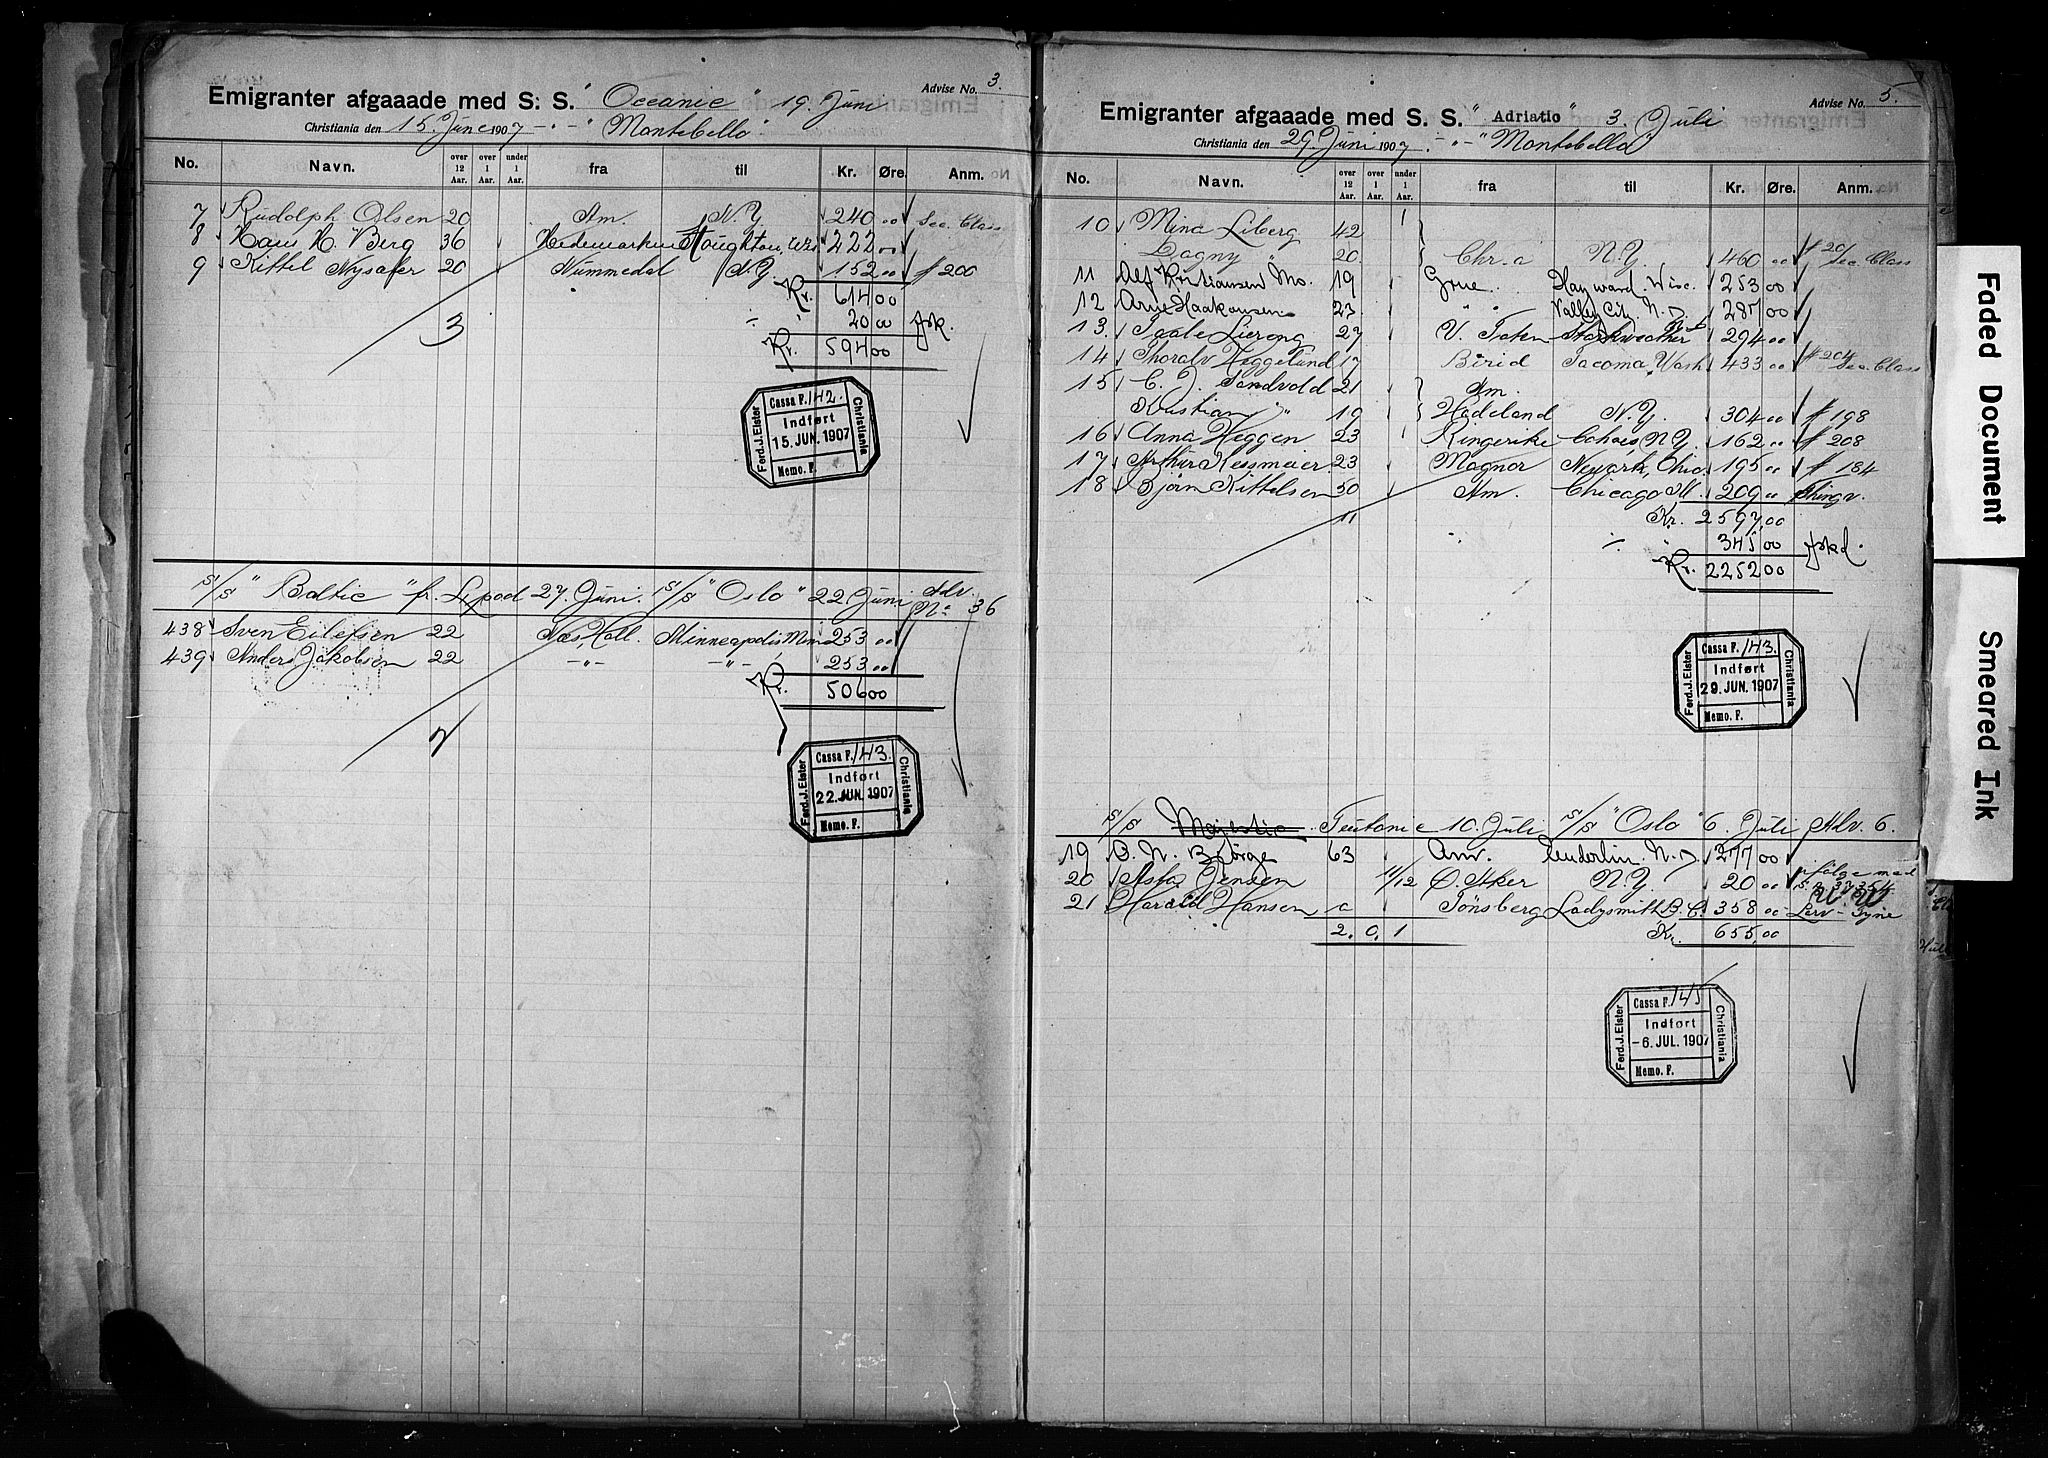 Advise No. 3.
Emigranter afgaaade med S. S. "Oceanic" 19. Juni
Christiania den 15. June 1907 -"- "Montebello".
No. Navn. over 12 Aar. over 1 Aar. under 1 Aar. fra til Kr. Øre. Anm.
7 Rudolph Olsen 20 Am. N.Y. 240 00 Sec. Class
8 Hans H. Berg 36 Hedemarken Stoughton, Wis 222 00
9 Kittel Nysæter 20 Nummedal N.Y. 152 00 # 200
Kr. 614 00
3 20 00
Kr. 594 00
Ferd. J. Elster Cassa F. 142. Indført 15. JUN. 1907 Memo. F. Christiania
S/S "Baltic" fr. Lpool 27. Juni. S/S "Oslo" 22 Juni Adv. No 36
438 Sven Eilefsen 22 Næs, Hall. Minneapolis, Minn 253 00
439 Anders Jakobsen 22 -"- -"- 253 00
Kr. 506 00
2
Ferd. J. Elster Cassa F. 143. Indført 22. JUN. 1907 Memo. F. Christiania
Advise No. 5.
Emigranter afgaaade med S. S. "Adriatic" 3 Juli
Christiania den 29. Juni 1907. -"- "Montebello"
No. Navn. over 12 Aar. over 1 Aar. under 1 Aar. fra til Kr. Øre. Anm.
10 Mina Liberg 42
Dagny " 20 Chr.a N.Y. 460 00 Sec. Class
11 Alf Kristiansen Mo. 19 Grue Hayward. Wisc. 253 00
12 Arne Haakonsen 23 " " Valley City. N.D. 287 00
13. 27 V. Toten Starkweather 294 00
14 Thoralv Heggelund 17 Birid Tacoma, Wash 433 00 # 204 Sec. Class
15 C. J. Sandvold 21 Am.
Kristian " 19 Hadeland N.Y. 304 00 # 198
16 Anna Heggen 23 Ringerike Cohoes N.Y. 162 00 # 208
17 Arthur Kessmeier 23 Magnor Newark, Ohio 195 00 # 184
18 Bjørn Kittelsen 50 Am. Chicago Ill. 209
11 Kr. 2597,00
345 00
Kr. 2252 00
Ferd. J. Elster Cassa F. 143. Indført 29. JUN. 1907 Memo. F. Christiania
S/S Majestic Teutonic 10. Juli S/S "Oslo" 6. Juli Adv. 6.
19 O. N. Bjørge 63 Am. Enderlin. N.D. 277 00
20 Asta Jensen 11/12 Ø. Aker N.Y. 20 00 følge med
21 Harald Hansen a Tönsberg Ladysmith B.C. 358 00 Larv - Tyne
2. 0. 1 Kr. 655,00
Ferd. J. Elster Cassa F. 145 Indført -6. JUL. 1907 Memo. F. Christiania
Faded Document
Smeared Ink